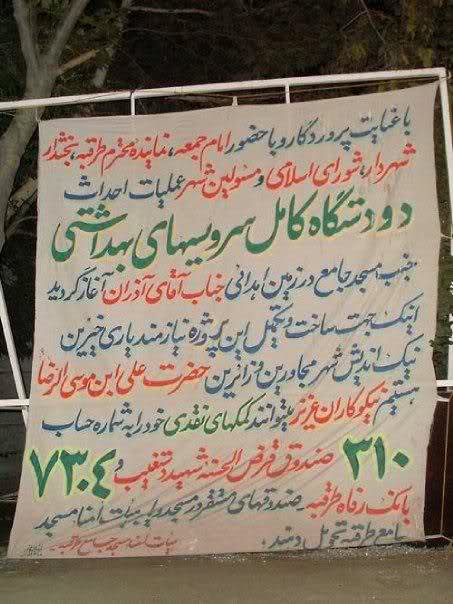 با عنایت پروردگار و با حضور امام جمعه، نماینده محترم طرقبه، بخشدار
شهردار، شورای اسلامی و مسئولین شهر عملیات احداث
دو دستگاه کامل سرویسهای بهداشتی
جنب مسجد جامع در زمین اهدائی جناب آقای آذران آغاز گردید
اینک جهت ساخت و تکمیل این پروژه نیازمند یاری خیرین
نیک اندیش شهر مجاورین و زائرین حضرت علی ابن موسی الرضا
هستیم نیکوکاران عزیز میتوانند کمکهای نقدی خود را به شماره حساب
۳۱۰ صندوق قرض الحسنه شهید دستغیب و ۷۳۰۴
بانک رفاه طرقبه - صندوقهای مستقر در مسجد و یا هیئت امنا مسجد
جامع طرقبه تحویل دهند.
هیئت امنا مسجد جامع طرقبه